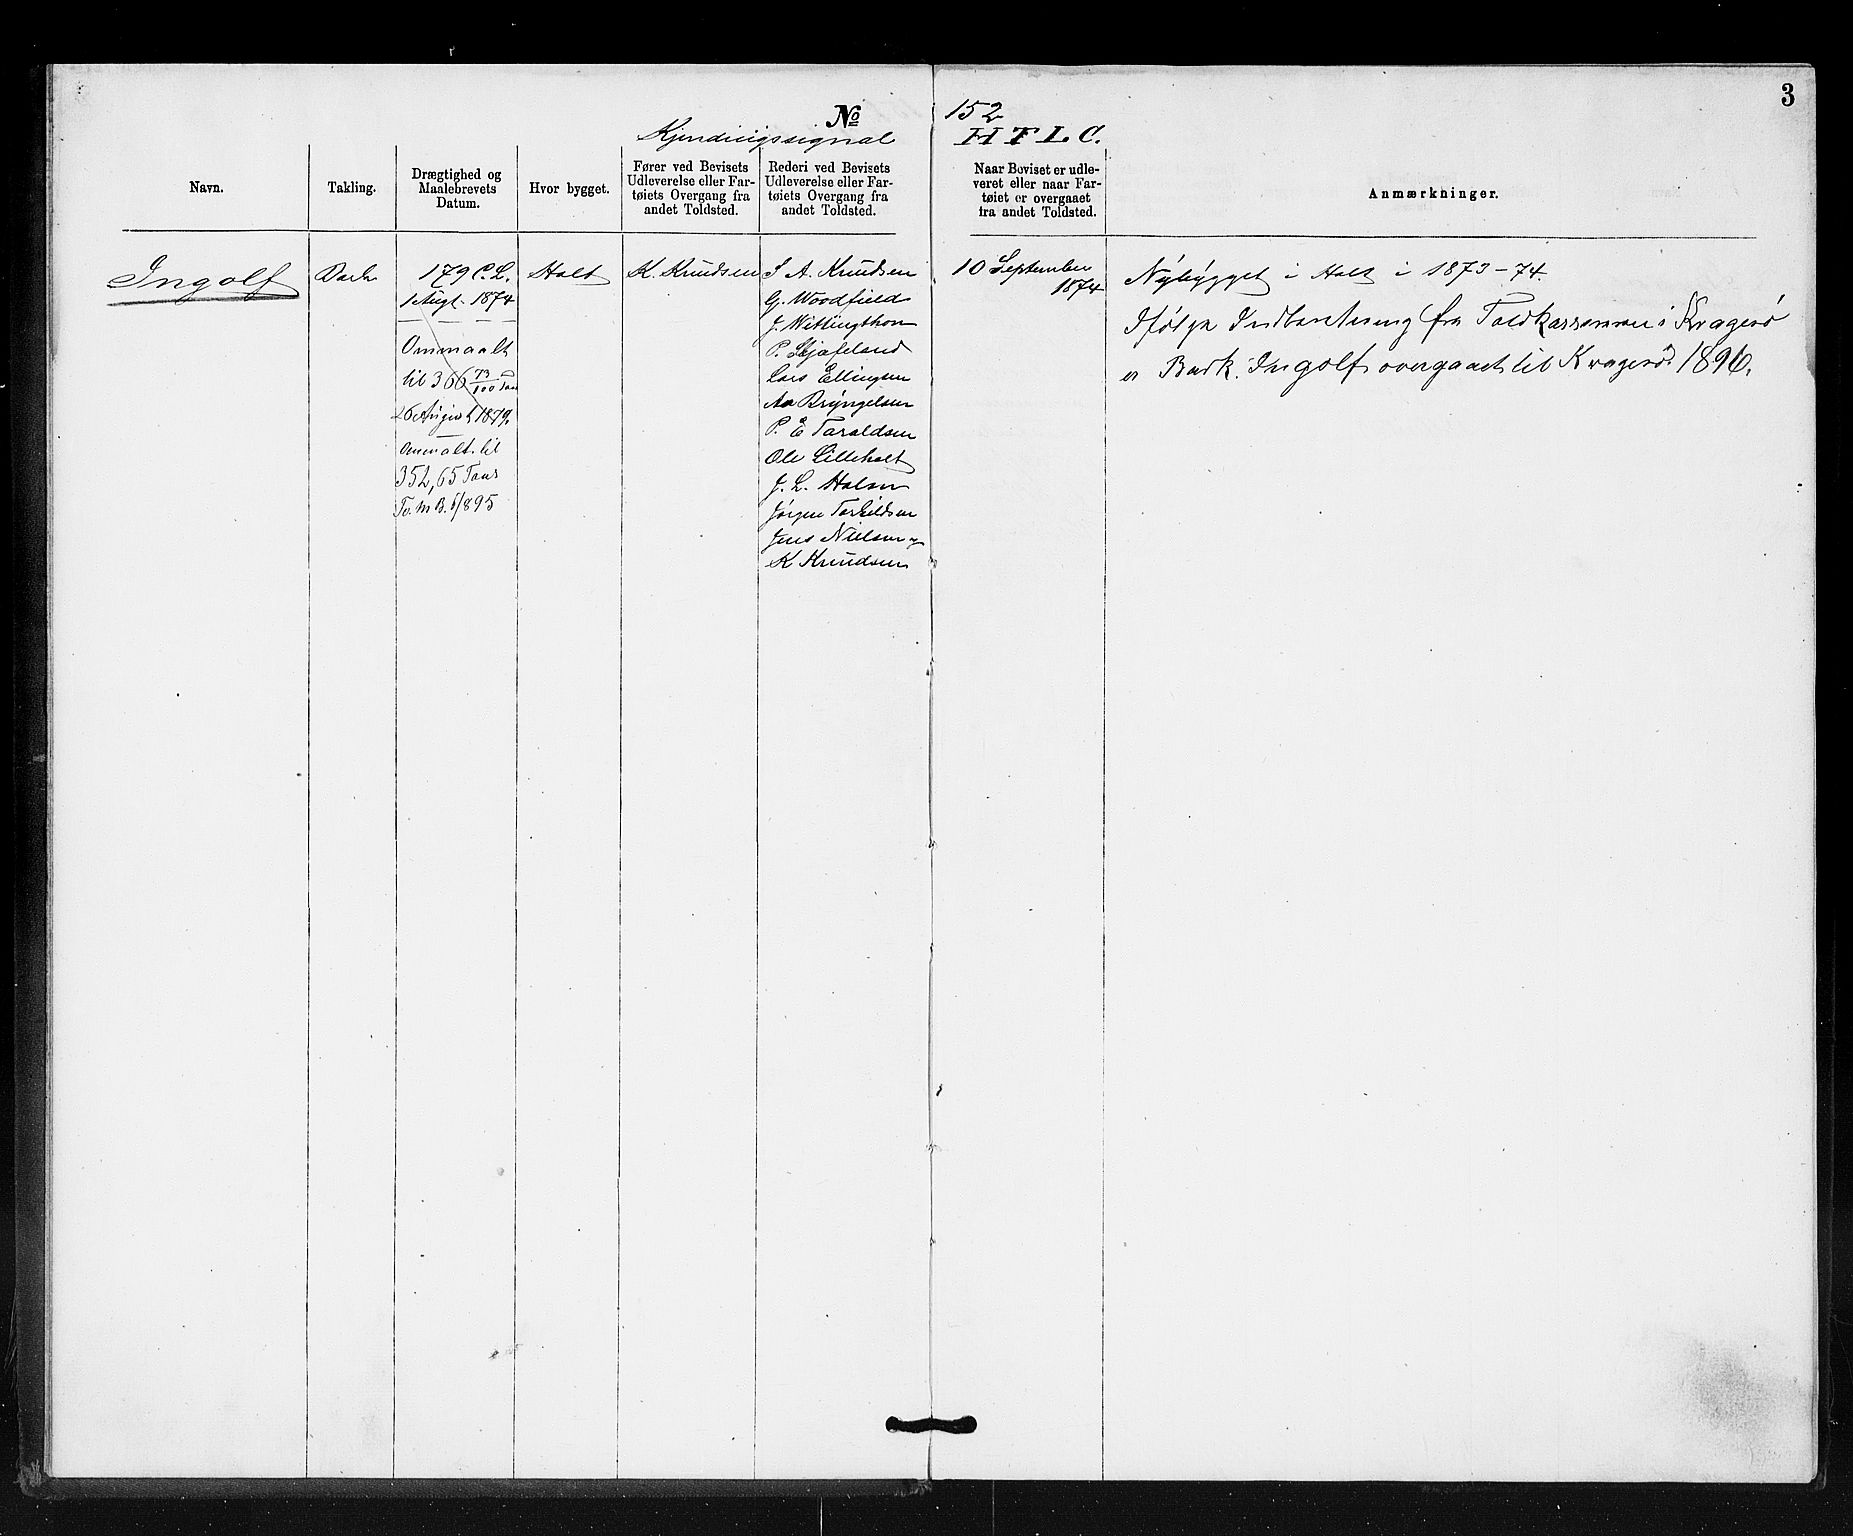 3
No 152
Kjendingssignal HTLC.
Navn.
Takling.
Drægtighed og
Maalebrevets
Datum.
Hvor bygget.
Fører ved Bevisets
Udleverelse eller Far-
tøiets Overgang fra
andet Toldsted.
Rederi ved Bevisets
Udleverelse eller Far-
tøiets Overgang fra
andet Toldsted.
Naar Beviset er udle-
veret eller naar Far-
tøiet er overgaaet
fra andet Toldsted.
Anmærkninger.
Ingolf
Bark
179 C.L.
1 Augt. 1874
Ommaalt
til 366 73/100 Tons
26 August 1879.
Ommalt til
352,65 Tons
Holt
K. Knudsen
S A. Knudsen
G. Woodfield
J. Wittingthon
P.
Lars Ellingsen
Aa Bryngelsen
P. E Taraldsen
Ole Lilleholt
J. L. Holsen
Jørgen Terkildsen
Jens Nielsen og
K Knudsen
10 September
1874
Nybygget i Holt i 1873-74.
Ifølge Indberetning fra Toldkassereren i Kragerø
er Bark. Ingolf overgaaet til Kragerø 1896.